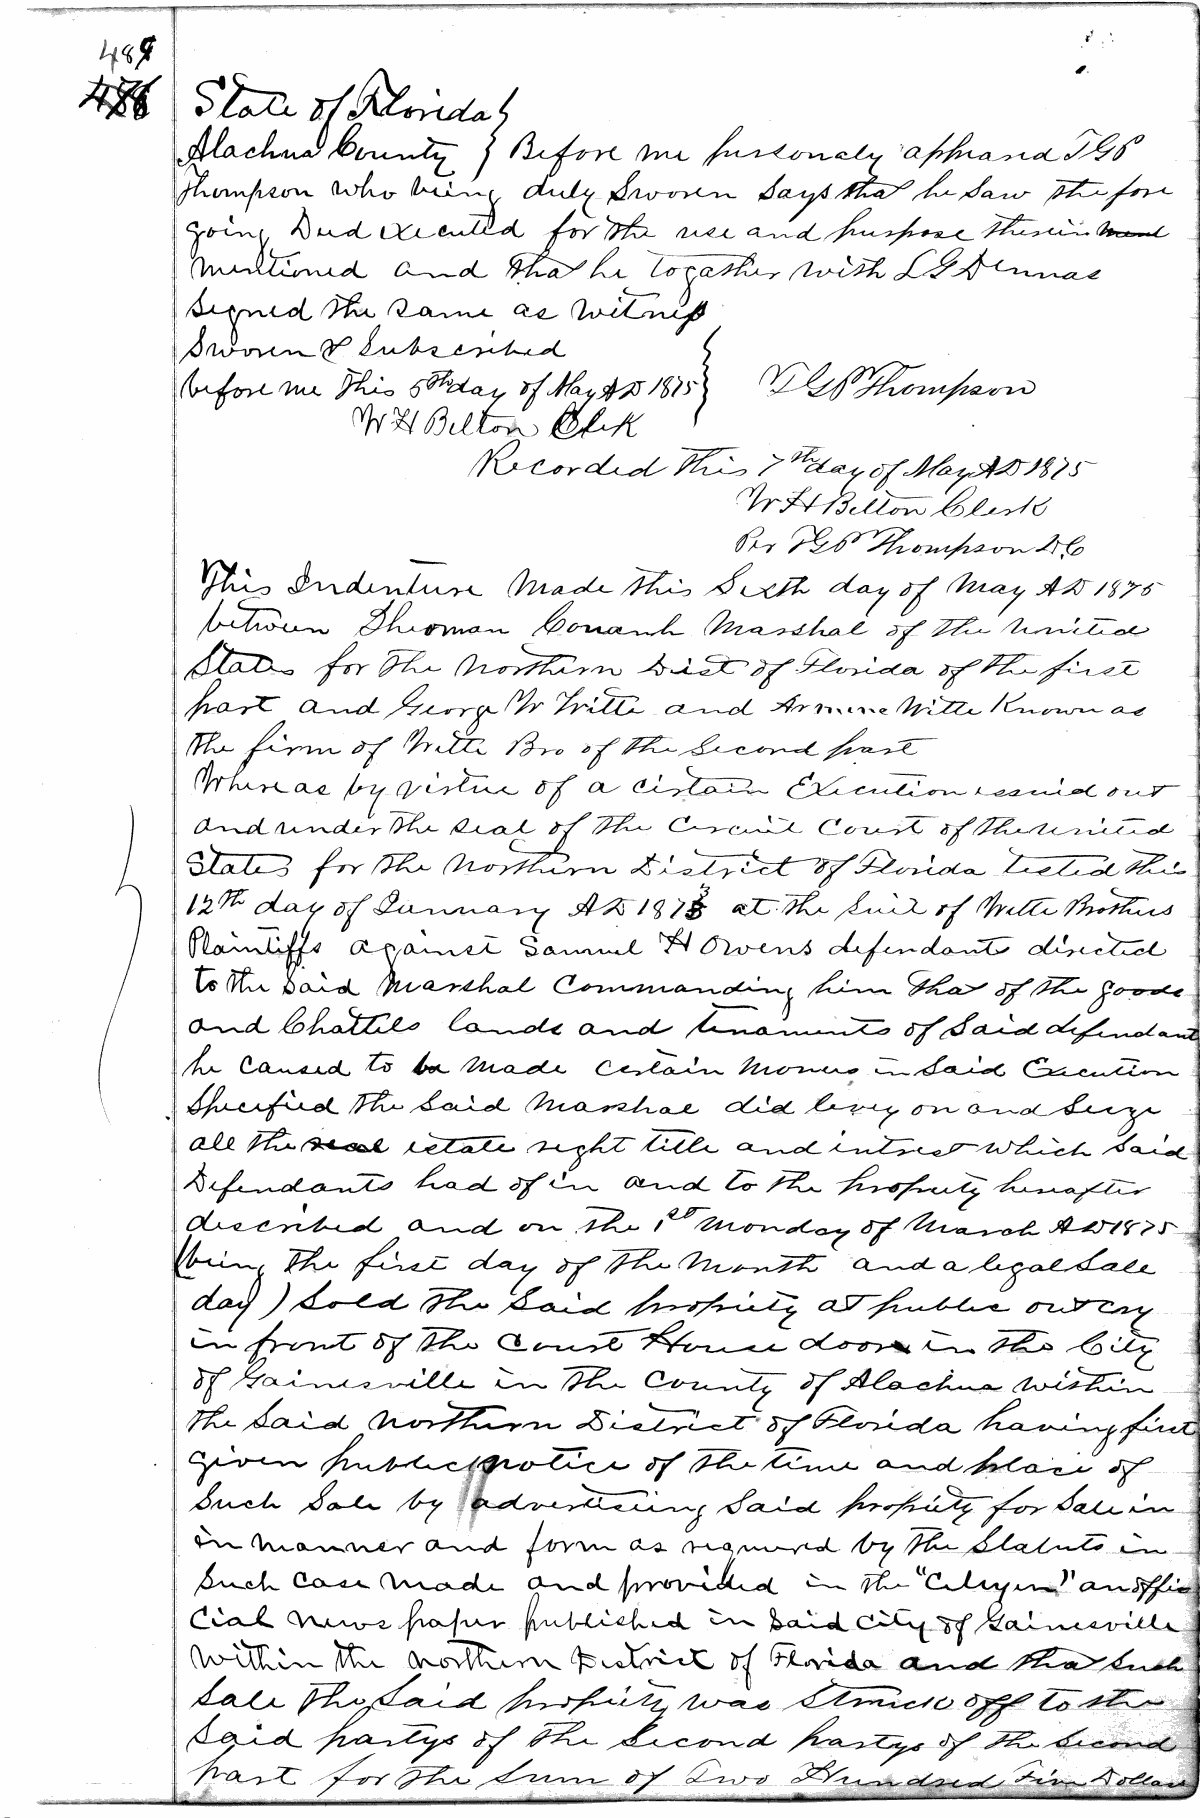 489
486
State of Florida }
Alachua County } Before me personaly appeared T G P
Thompson who being duly Sworen Says that he Saw the fore
going Deed executed for the use and purpose therein ment
mentioned and that he togather with L G Dennas
signed the same as witness
Sworen & Subscribed
before me this 5th day of May AD 1875 } T G P Thompson
W H Belton Clerk
Recorded this 7th day of May AD 1875
W H Belton Clerk
Per T G P Thompson D C
This Indenture Made this Sixth day of May AD 1875
between Sherman Conanh Marshal of the United
States for the Northern Dist of Florida of the first
part and George W Witte and Armine Witte Known as
the firm of Witte Bro of the Second part
Whereas by virtue of a certain Execution issuid out
and under the seal of the Circuit Court of the United
States for the Northern District of Florida tested this
12th day of January AD 1873 at the Suit of Witte Brothers
Plaintiffs against Samuel H Owens defendants directed
to the Said Marshal Commanding him that of the goods
and Chattels lands and tenaments of Said defendant
he caused to be made certain moneys in Said Execution
Specified the Said Marshal did levey on and Seize
all the real estate right title and intrest which Said
Defendants had of in and to the property hereafter
described and on the 1st Monday of March AD 1875
(being the first day of the Month and a legal Sale
day) Sold the Said property at public outcry
in front of the Court House door in the City
of Gainesville in the County of Alachua within
the Said Northern District of Florida having first
given public notice of the time and place of
Such Sale by advertising Said property for Sale in
in manner and form as required by the Statuts in
Such case made and provided in the "Citizen" an offi
cial news paper published in Said city of Gainesville
Within the Northern District of Florida and tha Such
Sale the Said property was Struck off to the
Said partys of the Second partys of the Second
part for the Sum of Two Hundred Five Dollars